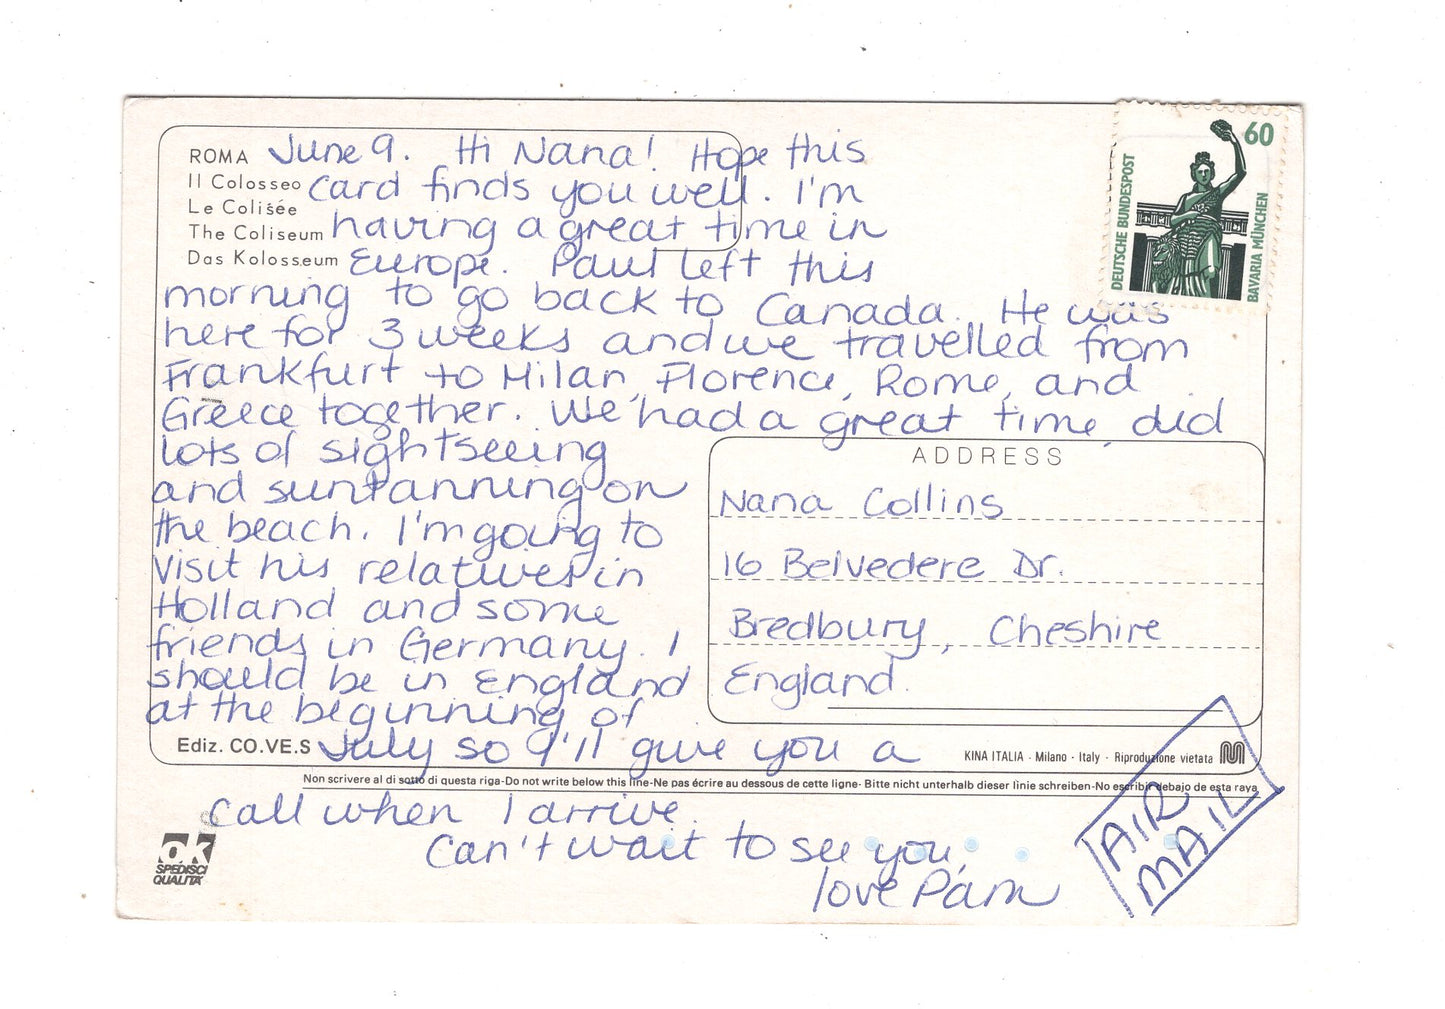 ROMA
Il Colosseo
Le Colisée
The Coliseum
Das Kolosseum
June 9. Hi Nana! Hope this
card finds you well. I'm
having a great time in
Europe. Paul left this
morning to go back to Canada. He was
here for 3 weeks and we travelled from
Frankfurt to Milan, Florence, Rome, and
Greece together. We had a great time, did
lots of sightseeing
and suntanning on
the beach. I'm going to
visit his relatives in
Holland and some
friends in Germany. I
should be in England
at the beginning of
July so I'll give you a
call when I arrive.
Can't wait to see you,
love Pam
60
DEUTSCHE BUNDESPOST
BAVARIA MÜNCHEN
ADDRESS
Nana Collins
16 Belvedere Dr.
Bredbury, Cheshire
England.
Ediz. CO.VE.S
KINA ITALIA - Milano - Italy - Riproduzione vietata
Non scrivere al di sotto di questa riga-Do not write below this line-Ne pas écrire au dessous de cette ligne- Bitte nicht unterhalb dieser linie schreiben-No escribir debajo de esta raya
ok
SPEDISCI
QUALITÀ
AIR
MAIL